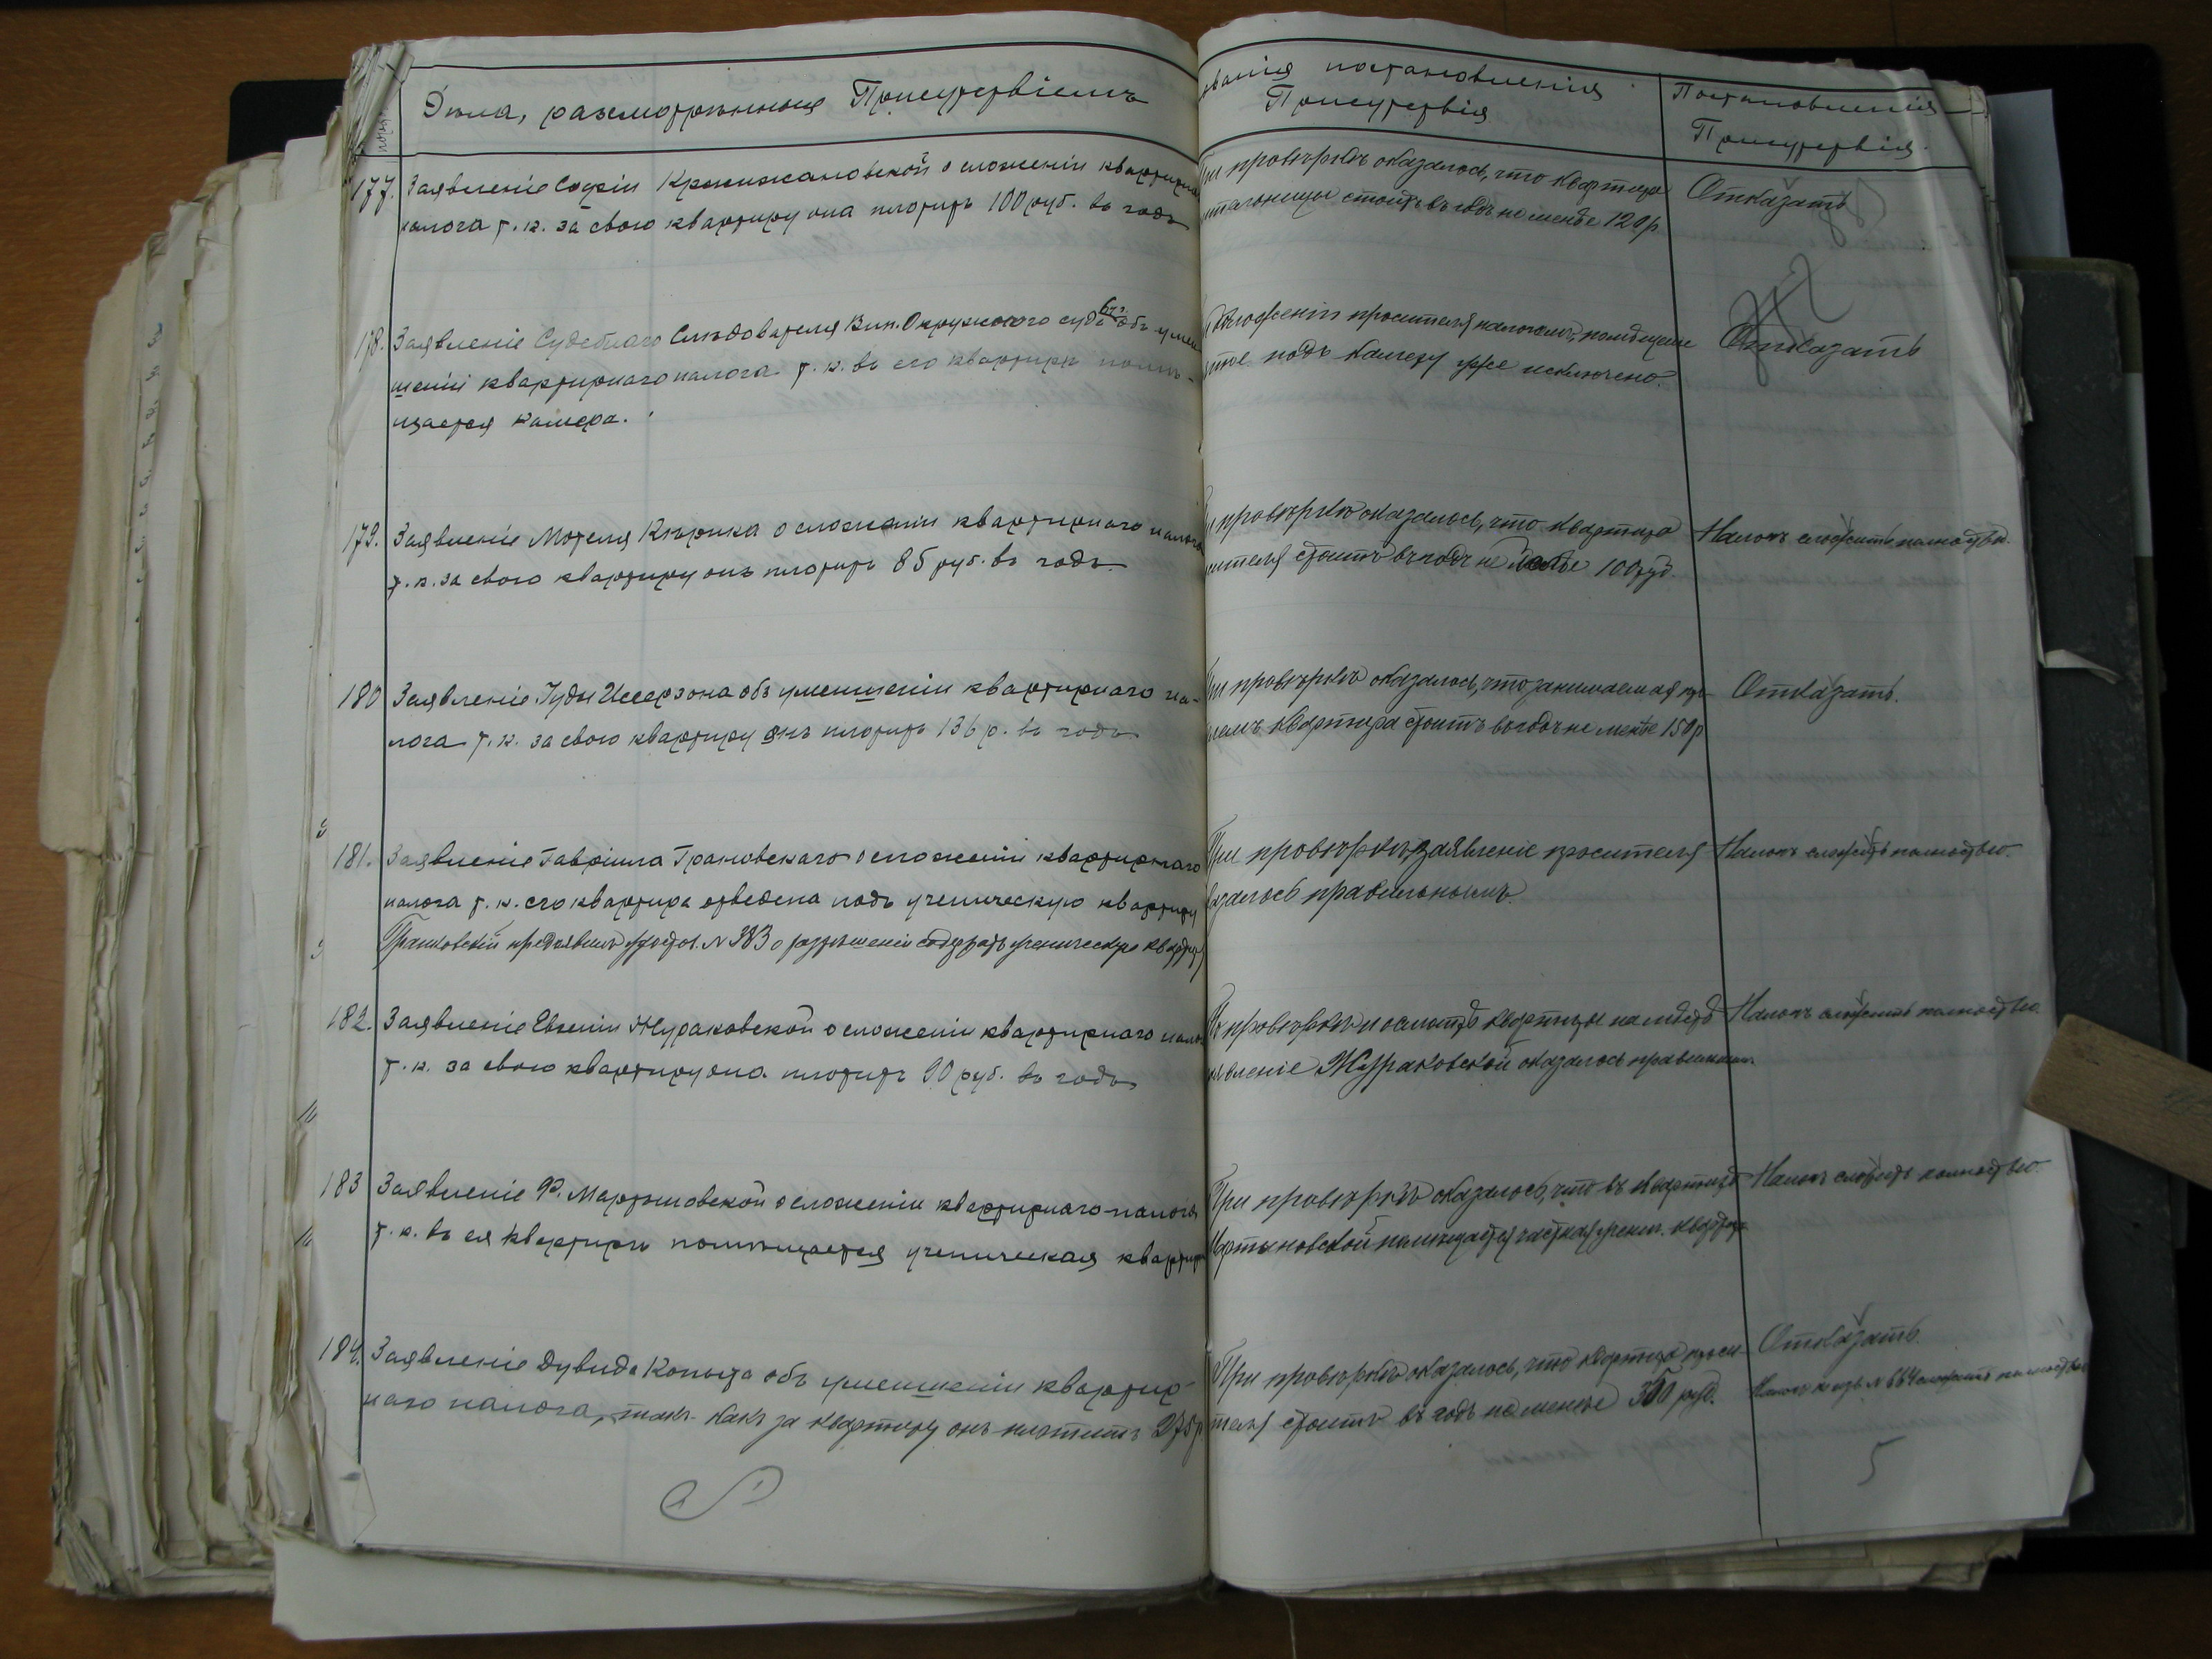 Дѣла, разсмотрѣнныя Присутствіемъ
ванія постановленія
Присутствія
Постановленія
Присутствія.
177. Заявленіе Софіи Кржижановской о сложеніи квартирна
налога т.к. за свою квартиру она платитъ 100 руб. въ годъ
при провѣркѣ оказалось, что квартира
стоитъ въ годъ не менѣе 120 р.
Отказать
178. Заявленіе Судебнаго Слѣдователя Вил. Окружного суда объ умен
шеніи квартирнаго налога т.к. въ его квартирѣ помѣ-
щается камера.
обложеніи просителя налогомъ, помѣщеніе
подъ камеру уже исключено.
Отказать
179. Заявленіе Мотеля Кѣрика о сложеніи квартирнаго налога
т.к. за свою квартиру онъ платитъ 85 руб. въ годъ.
провѣркѣ оказалось, что квартира
сителя стоитъ въ годъ не болѣе 100 руб.
Налогъ сложить полностью.
180 Заявленіе Іуды Иссерзона объ уменшеніи квартирнаго на-
лога т.к. за свою квартиру онъ платитъ 136 р. въ годъ
при провѣркѣ оказалось, что занимаемая
квартира стоитъ въ годъ не менѣе 150 р
Отказать.
181. Заявленіе Гавріила Грановскаго о сложеніи квартирнаго
налога т.к. его квартира отведена подъ ученическую квартиру
Грановскій предъявилъ удостов. № 383 о разрѣшеніи содержать ученическую квартиру
При провѣркѣ заявленіе просителя
казалось правильнымъ
Налогъ сложить полностью.
182. Заявленіе Евгеніи Жураковской о сложеніи квартирнаго нало
т.к. за свою квартиру она платитъ 90 руб. въ годъ
провѣркѣ и осмотрѣ квартиры на мѣстѣ
явленіе Жураковской оказалось правильнымъ
Налогъ сложить полностью.
183 Заявленіе Ф. Мартыновской о сложеніи квартирнаго налога
т.к. въ ея квартирѣ помѣщается ученическая квартира
При провѣркѣ оказалось, что въ квартирѣ
Мартыновской помѣщается частная учен. квартира
Налогъ сложить полностью.
184. Заявленіе Дувида Копыта объ уменшеніи квартир-
наго налога, такъ-какъ за квартиру онъ платитъ 275 р
При провѣркѣ оказалось, что квартира проси-
теля стоитъ въ годъ не менѣе 300 руб.
Отказать.
Налогъ № 664 сложить полностью
5